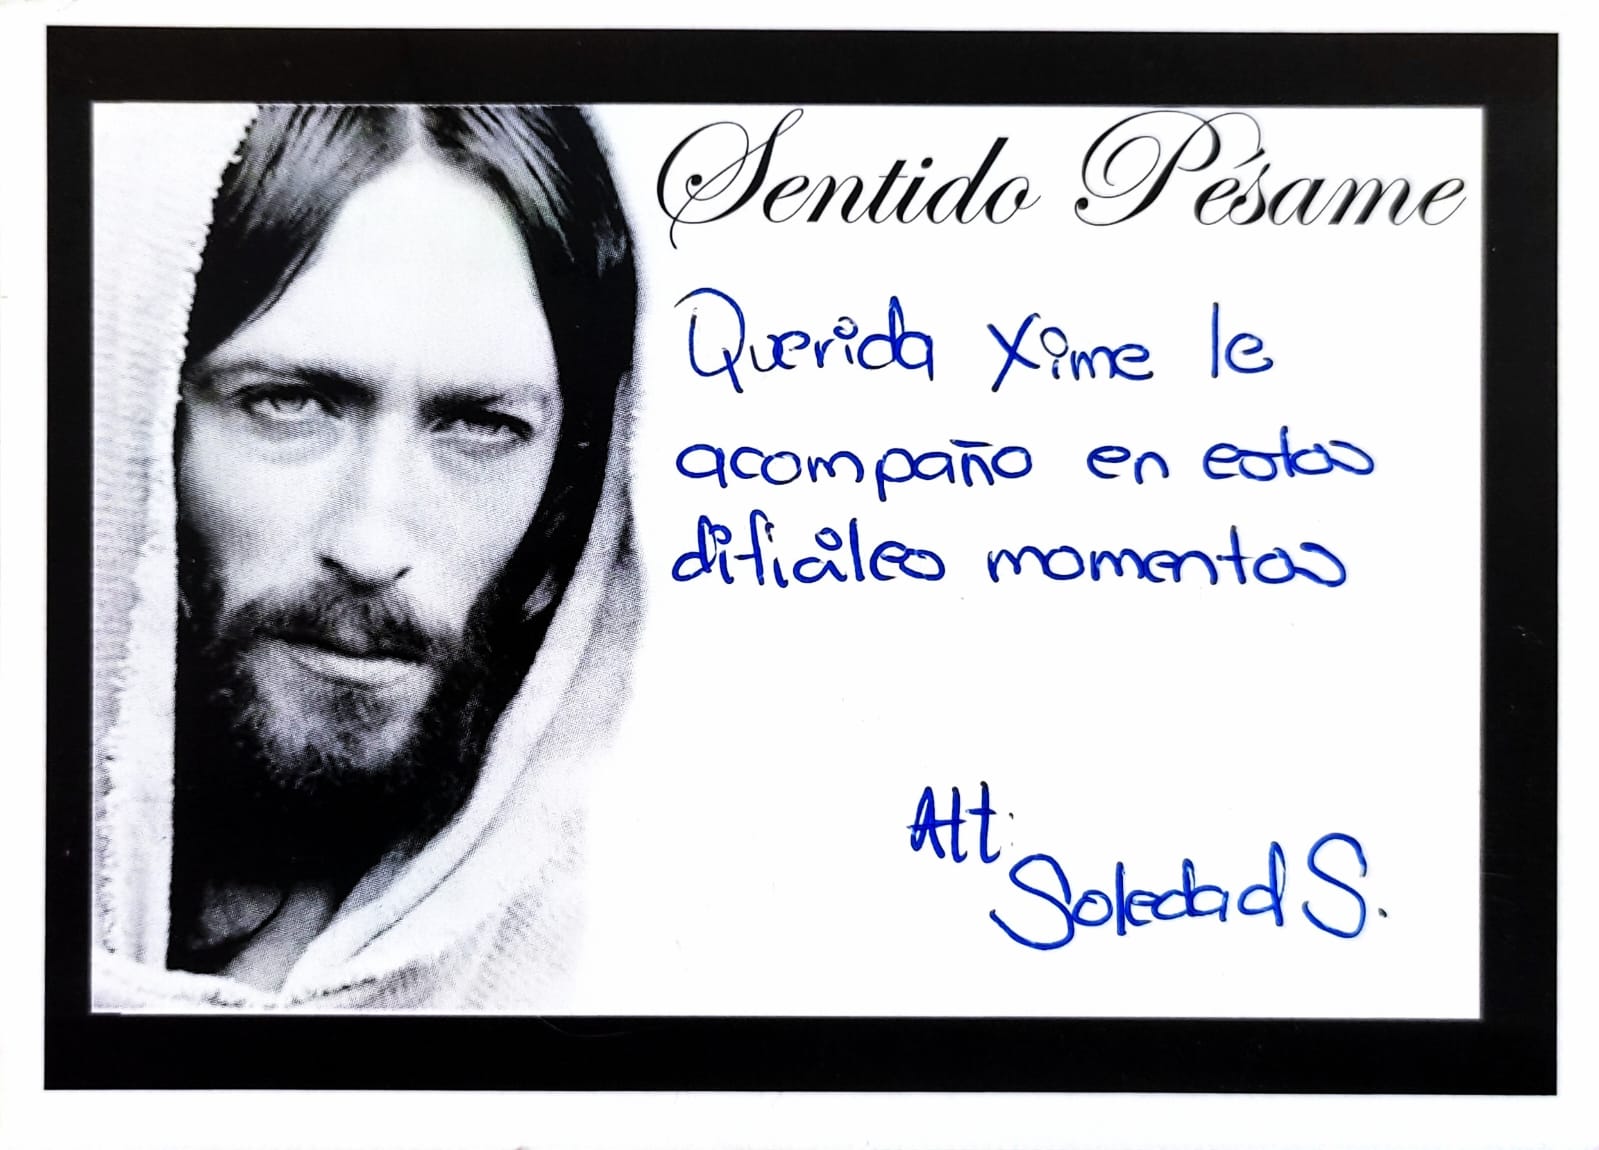 Sentido Pésame
Querida Xime le
acompaño en estos
difíciles momentos
Att:
Soledad S.